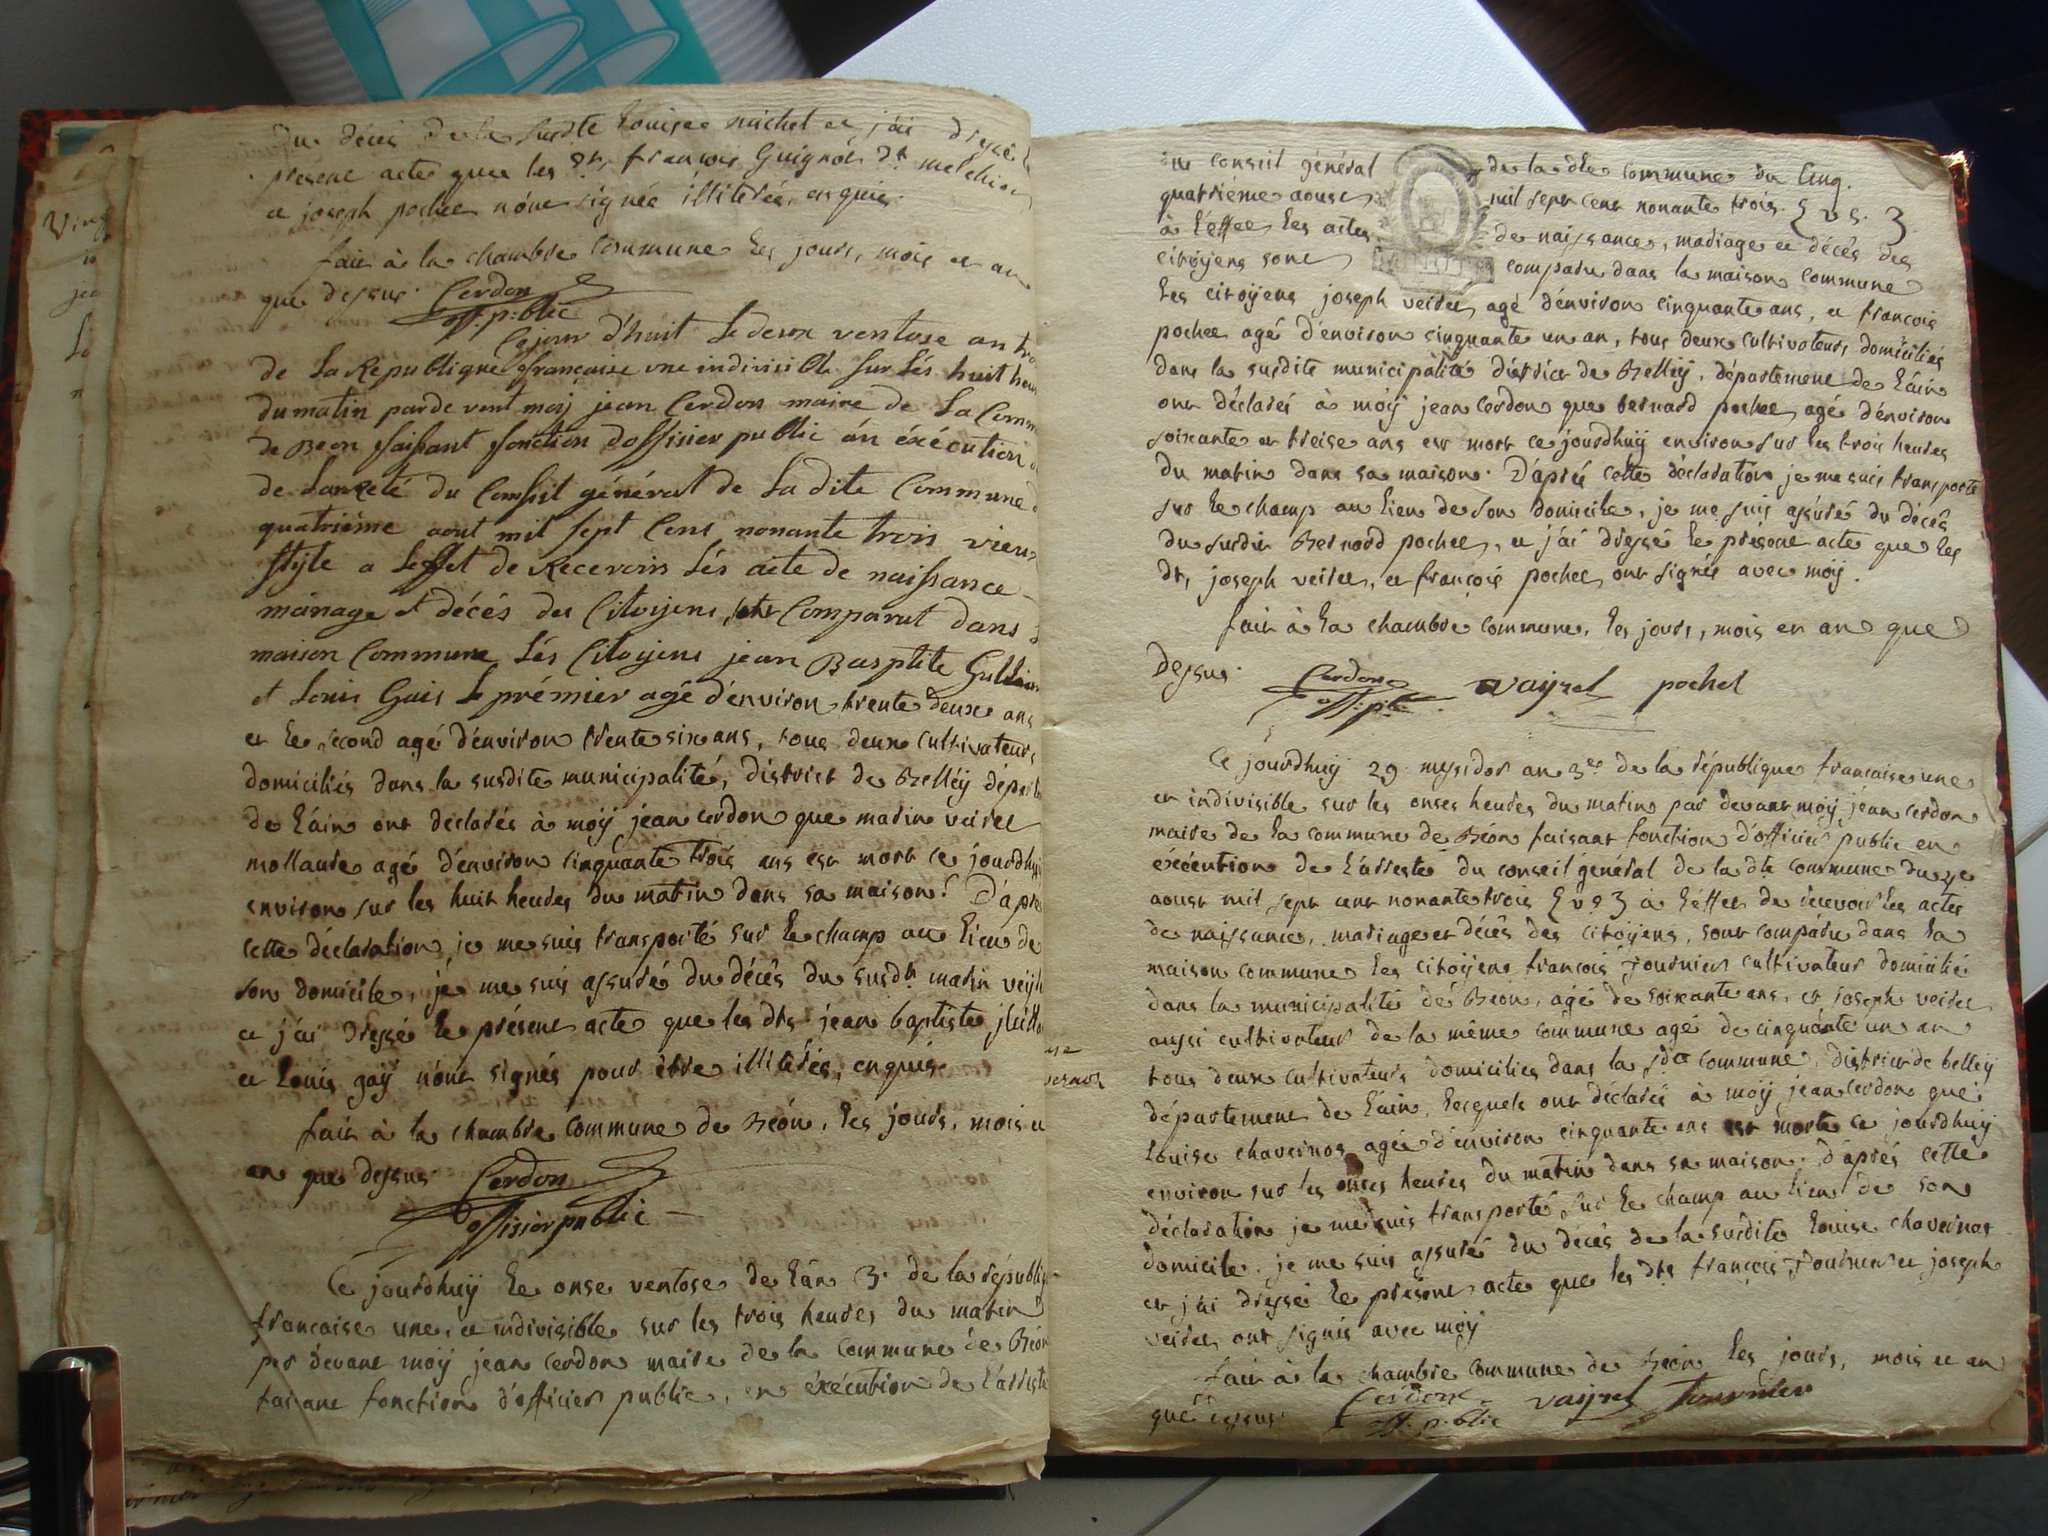 du décés de la susdte Louise michel et j'ai dressé le
present acte que les Srs francois Guignod dt melchior
et joseph pochet n'ont signés illiterés, enquis.
fait à la chambre commune les jours, mois et an
que dessus. Cerdon
off. public
Cejour d'huit Le deux ventose an
de La Republique francaise une indivisible sur Lés huit
du matin parde vent moÿ jean Cerdon maire de La
de Beon faissant fonction dofficier public én éxécution
de Larreté du Conseil général de La dite Commune
quatriéme aout mil sept Cens nonante trois vieux
style a Leffet de Recevoirs Lés acte de naissance
mariage et décés des Citoyens Comparut dans
maison Commune Lés Citoyens jean Basptite
et Louis Guis Le prémier agé d'environ trente deux ans
et le second agé d'environ trente six ans, tous deux cultivateurs
domiciliés dans la susdite municipalité, district de Belleÿ
de l'áin ont déclarés à moÿ jean cerdon que marin veiret
mollaure agé d'environ cinquante trois ans est mort ce
environ sur les huit heures du matin dans sa maison. D'aprés
cette déclaration je me suis transporté sur le champ au lieu de
son domicile, je me suis assuré du décés du susdt marin
et j'ai dressé le présent acte que les dts jean baptiste
et Louis gaÿ n'ont signés pour étre illiterés, enquis.
fait à la chambre commune de Béon, les jours, mois et
an que dessus Cerdon
officier public
Ce jourdhuÿ le onse ventose de l'án 3e de la
francaise une, et indivisible sur les trois heures du matin
par devant moÿ jean cerdon maire de la commune de Béon
faisant fonction d'officier public, en éxécution de
du conseil général de la dte commune du Cinq.
quatriéme aoust mil sept cent nonante trois. { v s. }
à l'éffet les actes de naissance, mariage et décés des
citoÿens sont comparu dans la maison commune
les citoÿens joseph veiret agé d'énviron cinquante ans, et francois
pochet agé d'énviron cinquante un an, tous deux cultivateurs domiciliés
dans la susdite municipalité district de Belleÿ, département de l'áin
ont déclarés à moÿ jean cerdon que bernard pochet agé d'énviron
soixante et treise ans est mort ce jourdhuÿ environ sur les trois heures
du matin dans sa maison. D'aprés cette déclaration je me suis transporté
sur le champ au lieu de son domicile, je me suis assuré du décés
du susdit Bernard pochet, et j'ái dressé le présent acte que les
dts joseph veiret, et françois pochet ont signés avec moÿ.
fait à la chambre commune, les jours, mois et an que
dessus. Cerdon vaÿret pochet
off. p.
Ce jourdhuÿ 29 mysidor an 3e de la république francaise une
et indivisible sur les onses heures du matin par devant moÿ jean cerdon
maire de la commune de Béon faisant fonction d'officier public en
éxécution de l'árresté du conseil genéral de la dte commune du
aoust mil sept cent nonante trois { v s } à l'éffet de recevoir les actes
de naissance, mariage et décés des citoÿens, sont comparu dans la
maison commune les citoÿens francois fournier cultivateur domicilié
dans la municipalité de Béon, agé de soixante ans, et joseph veiret
aussi cultivateur de la même commune agé de cinquante un an
tous deux cultivateurs domiciliés dans la sdte commune, district de belleÿ
département de l'áin, lesquels ont déclarés à moÿ jean cerdon que
Louise chavernos agée d'énviron cinquante ans est morte ce jourdhuÿ
environ sur les onses heures du matin dans sa maison. D'aprés cette
déclaration je me suis transporté sur le champ au lieu de son
domicile, je me suis assuré du décés de la susdite Louise chavernos
et j'ái dressé le présent acte que les dts françois fournier et joseph
veiret ont signés avec moÿ
fait à la chambre commune de Béon les jours, mois et an
que dessus. Cerdon vaÿret fournier
off. public